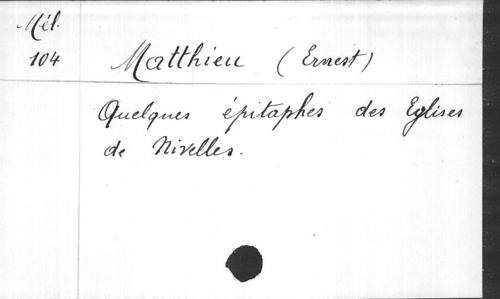 Mél.
104
Matthieu (Ernest)
Quelques épitaphes des Eglises
de Nivelles.